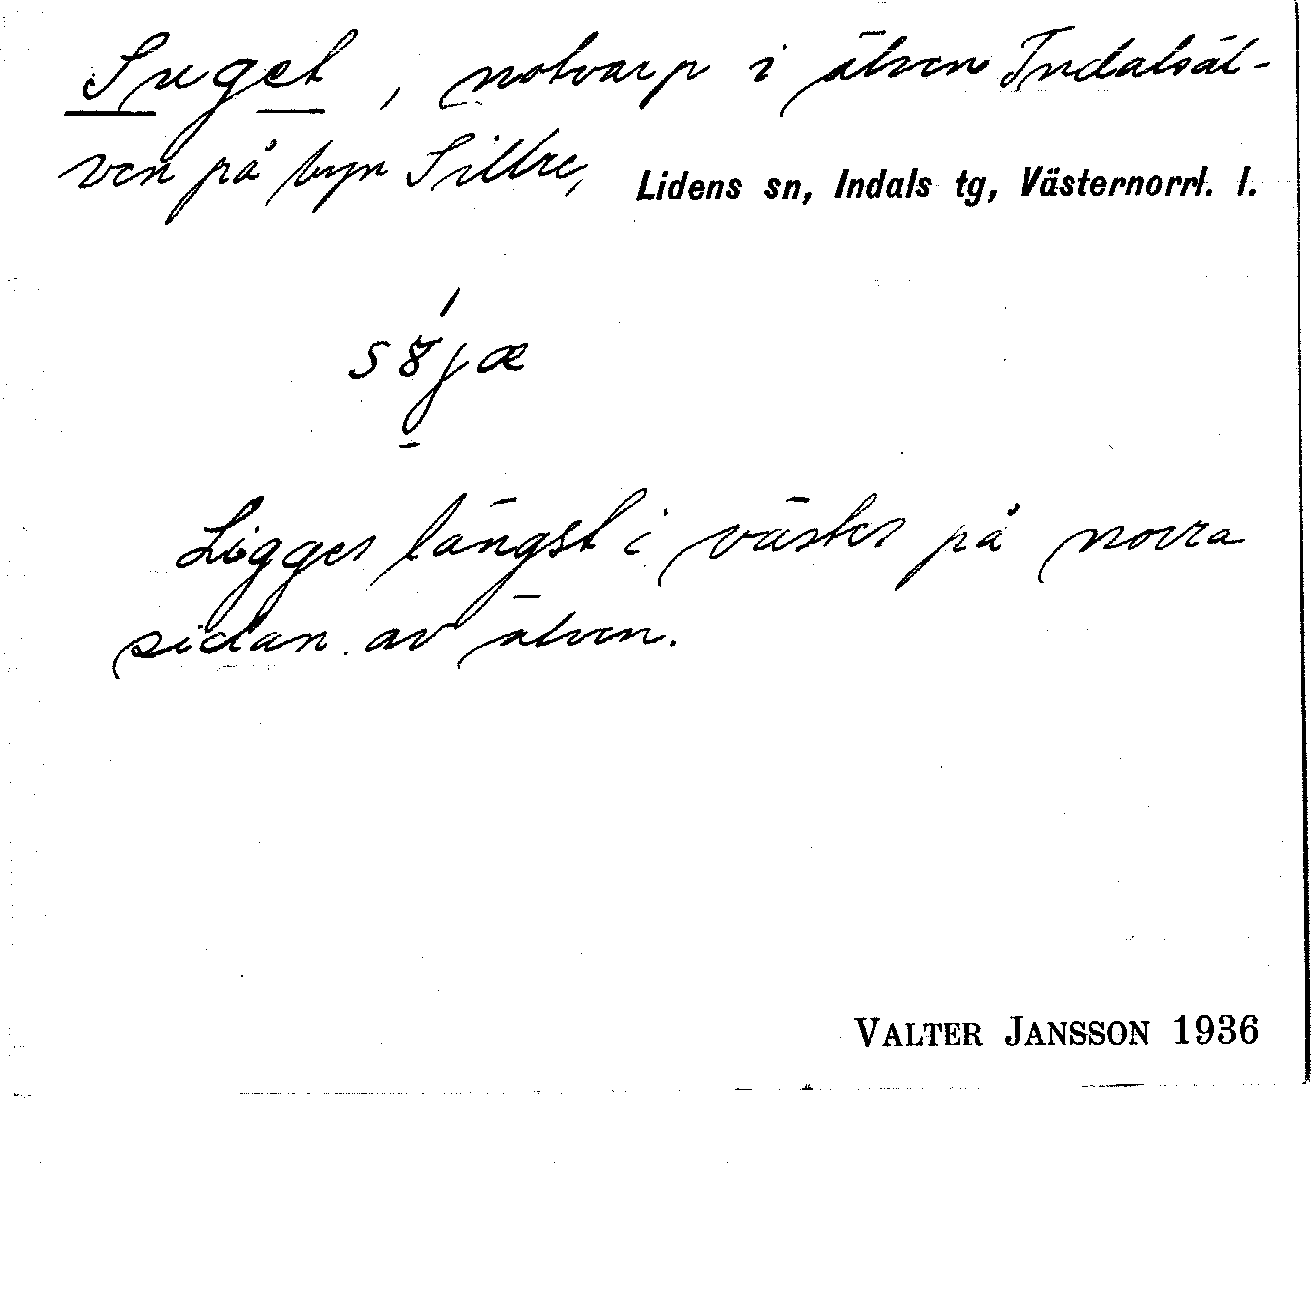 Suget, notvarp i älven Indalsäl-
ven på byn Sillre, Lidens sn, Indals tg, Västernorrl. l.
Ligger längst i väster på norra
sidan av älven.
VALTER JANSSON 1936